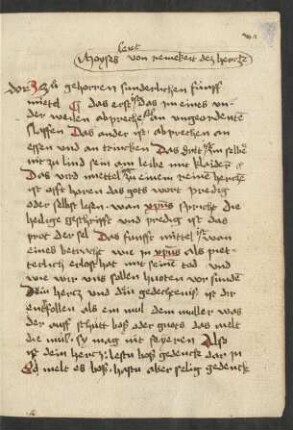 lert
Moyses von reinekeit des hertzē
dor Zu gehorren sunderlichen fünff
mittel ¶ das erst Das in eines un
der weilen abpreche an ungeordenetē
slaffen Das ander ist abprechen an
essen und an trincken Das dritt im selber
nit zu lind sein am leibe mit klaider
Das vird miettel zu einem reinē hertzē
ist offt horen das gots wort predig
oder selbst lesen wan xp̄us spricht die
heilige geschrifft und predig ist das
prot der sel Das fünfft mittel ist wan
eines betracht wie in xp̄us als
erlost hat mit seinē tod und
wie wir uns sollen huoten vor sünden
Dein hertz und dein gedechtnus ist dir
enpfollen als ein mul dem muller was
der auff schütt boß oder guots das melt
die mül sy mag nit feyeren Also
ist dein hertz lestu boß gedenck dar in
So melt es boß hastu aber selig gedenck